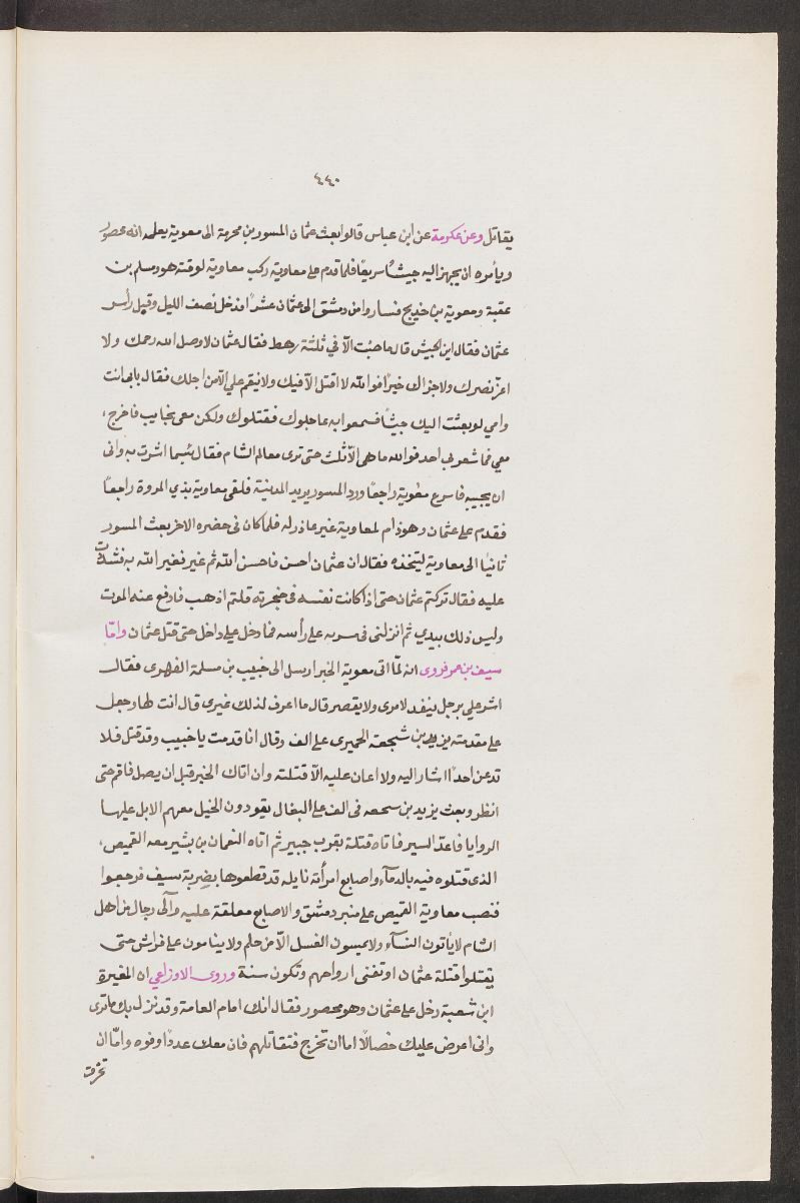 ٤٤٠
يقاتل وعن عكرمة عن ابن عباس قالوا بعث عثمان المسور بن مخرمة الى معوية يعلمه انه محصور
ويأمره ان يجهز اليه جيشًا سريعًا فلما قدم على معاوية ركب معاوية لوقته هو ومسلم بن
عقبة ومعوية بن خديج فساروا من دمشق الى عثمان عشرًا فدخل نصف الليل وقبل رأس
عثمان فقال اين الجيش قال ما جئت الا في ثلثة رهط فقال عثمان لا وصل الله رحمك ولا
اعز نصرك ولا جزاك خيرًا فوالله لا اقتل الا فيك ولا ينقم علي الا من اجلك فقال بابى انت
وامي لو بعثت اليك جيشًا فسمعوا به عاجلوك فقتلوك ولكن معى نجايب فاخرج،
معي فما شعر بى احد فوالله ما هى الا ثلث حتى ترى معالم الشام فقال بئسما اشرت به وابى
ان يجيبه فاسرع معوية راجعًا وورد المسور يريد المدينة فلقى معاوية بذي المروة راجعًا
فقدم على عثمان وهو ذام لمعاوية غير عاذر له فلما كان فى حضره الاخر بعث المسور
ثانيا الى معاوية ليتخذه فقال ان عثمان احسن فاحسن الله ثم غير فغير الله به فشددت
عليه فقال تركتم عثمان حتى اذا كانت نفسه فى حنجرته قلتم اذهب فادفع عنه الموت
وليس ذلك بيدي ثم انزلنى فى سربه على رأسه فما دخل على داخل حتى قتل عثمان واما
سيف بن عمر فروى انه لما اتى معوية الخبر ارسل الى حبيب بن مسلمة الفهرى فقال
اشر علي برجل ينفد لامرى ولا يقصر قال ما اعرف لذلك غيرى قال انت لها وجعل
على مقدمته يزيد بن شجعة الحميرى على الف وقال ان قدمت يا حبيب وقد قتل فلا
تدعن احدًا اشار اليه ولا اعان عليه الا قتلته وان اتاك الخبر قبل ان يصل فاقم حتى
انظر وبعث يزيد بن سجعه فى الف على البغال يقودون الخيل معهم الابل عليها
الروايا فاغذ السير فاتاه قتله بقرب جبير ثم اتاه النعمان بن بشير معه القميص،
الذى قتلوه فيه بالدماء واصابع امرأته نايله قد قطعوها بضربة سيف فرجعوا
فنصب معاوية القميص على منبر دمشق والاصابع معلقة عليه وآلى رجال من اهل
الشام لا يأتون النساء ولا يمسون الغسل الا من حلم ولا ينامون على فراش حتى
يقتلوا قتلة عثمان او تفنى ارواحهم وتكون سنة وروى الاوزاعي ان المغيرة
ابن شعبة دخل على عثمان وهو محصور فقال انك امام العامة وقد نزل بك ما ترى
وانى اعرض عليك خصالًا اما ان تخرج فتقاتلهم فان معك عددًا وقوه واما ان
تخرق